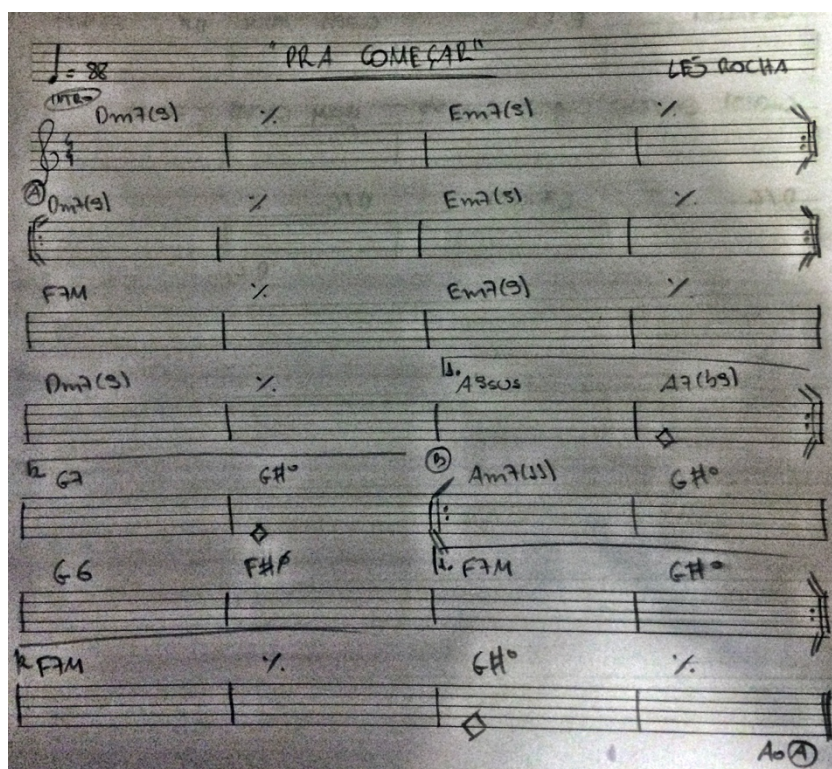 ♩= 88 "PRA COMEÇAR" LÉO ROCHA
INTRO
Dm7(9) ٪ Em7(9) ٪
4/4
A Dm7(9) ٪ Em7(9) ٪
F7M ٪ Em7(9) ٪
Dm7(9) ٪ 1. A9sus A7(b9)
2. G7 G#° B Am7(11) G#°
G6 F#ø 1. F7M G#°
2. F7M ٪ G#° ٪
Ao A